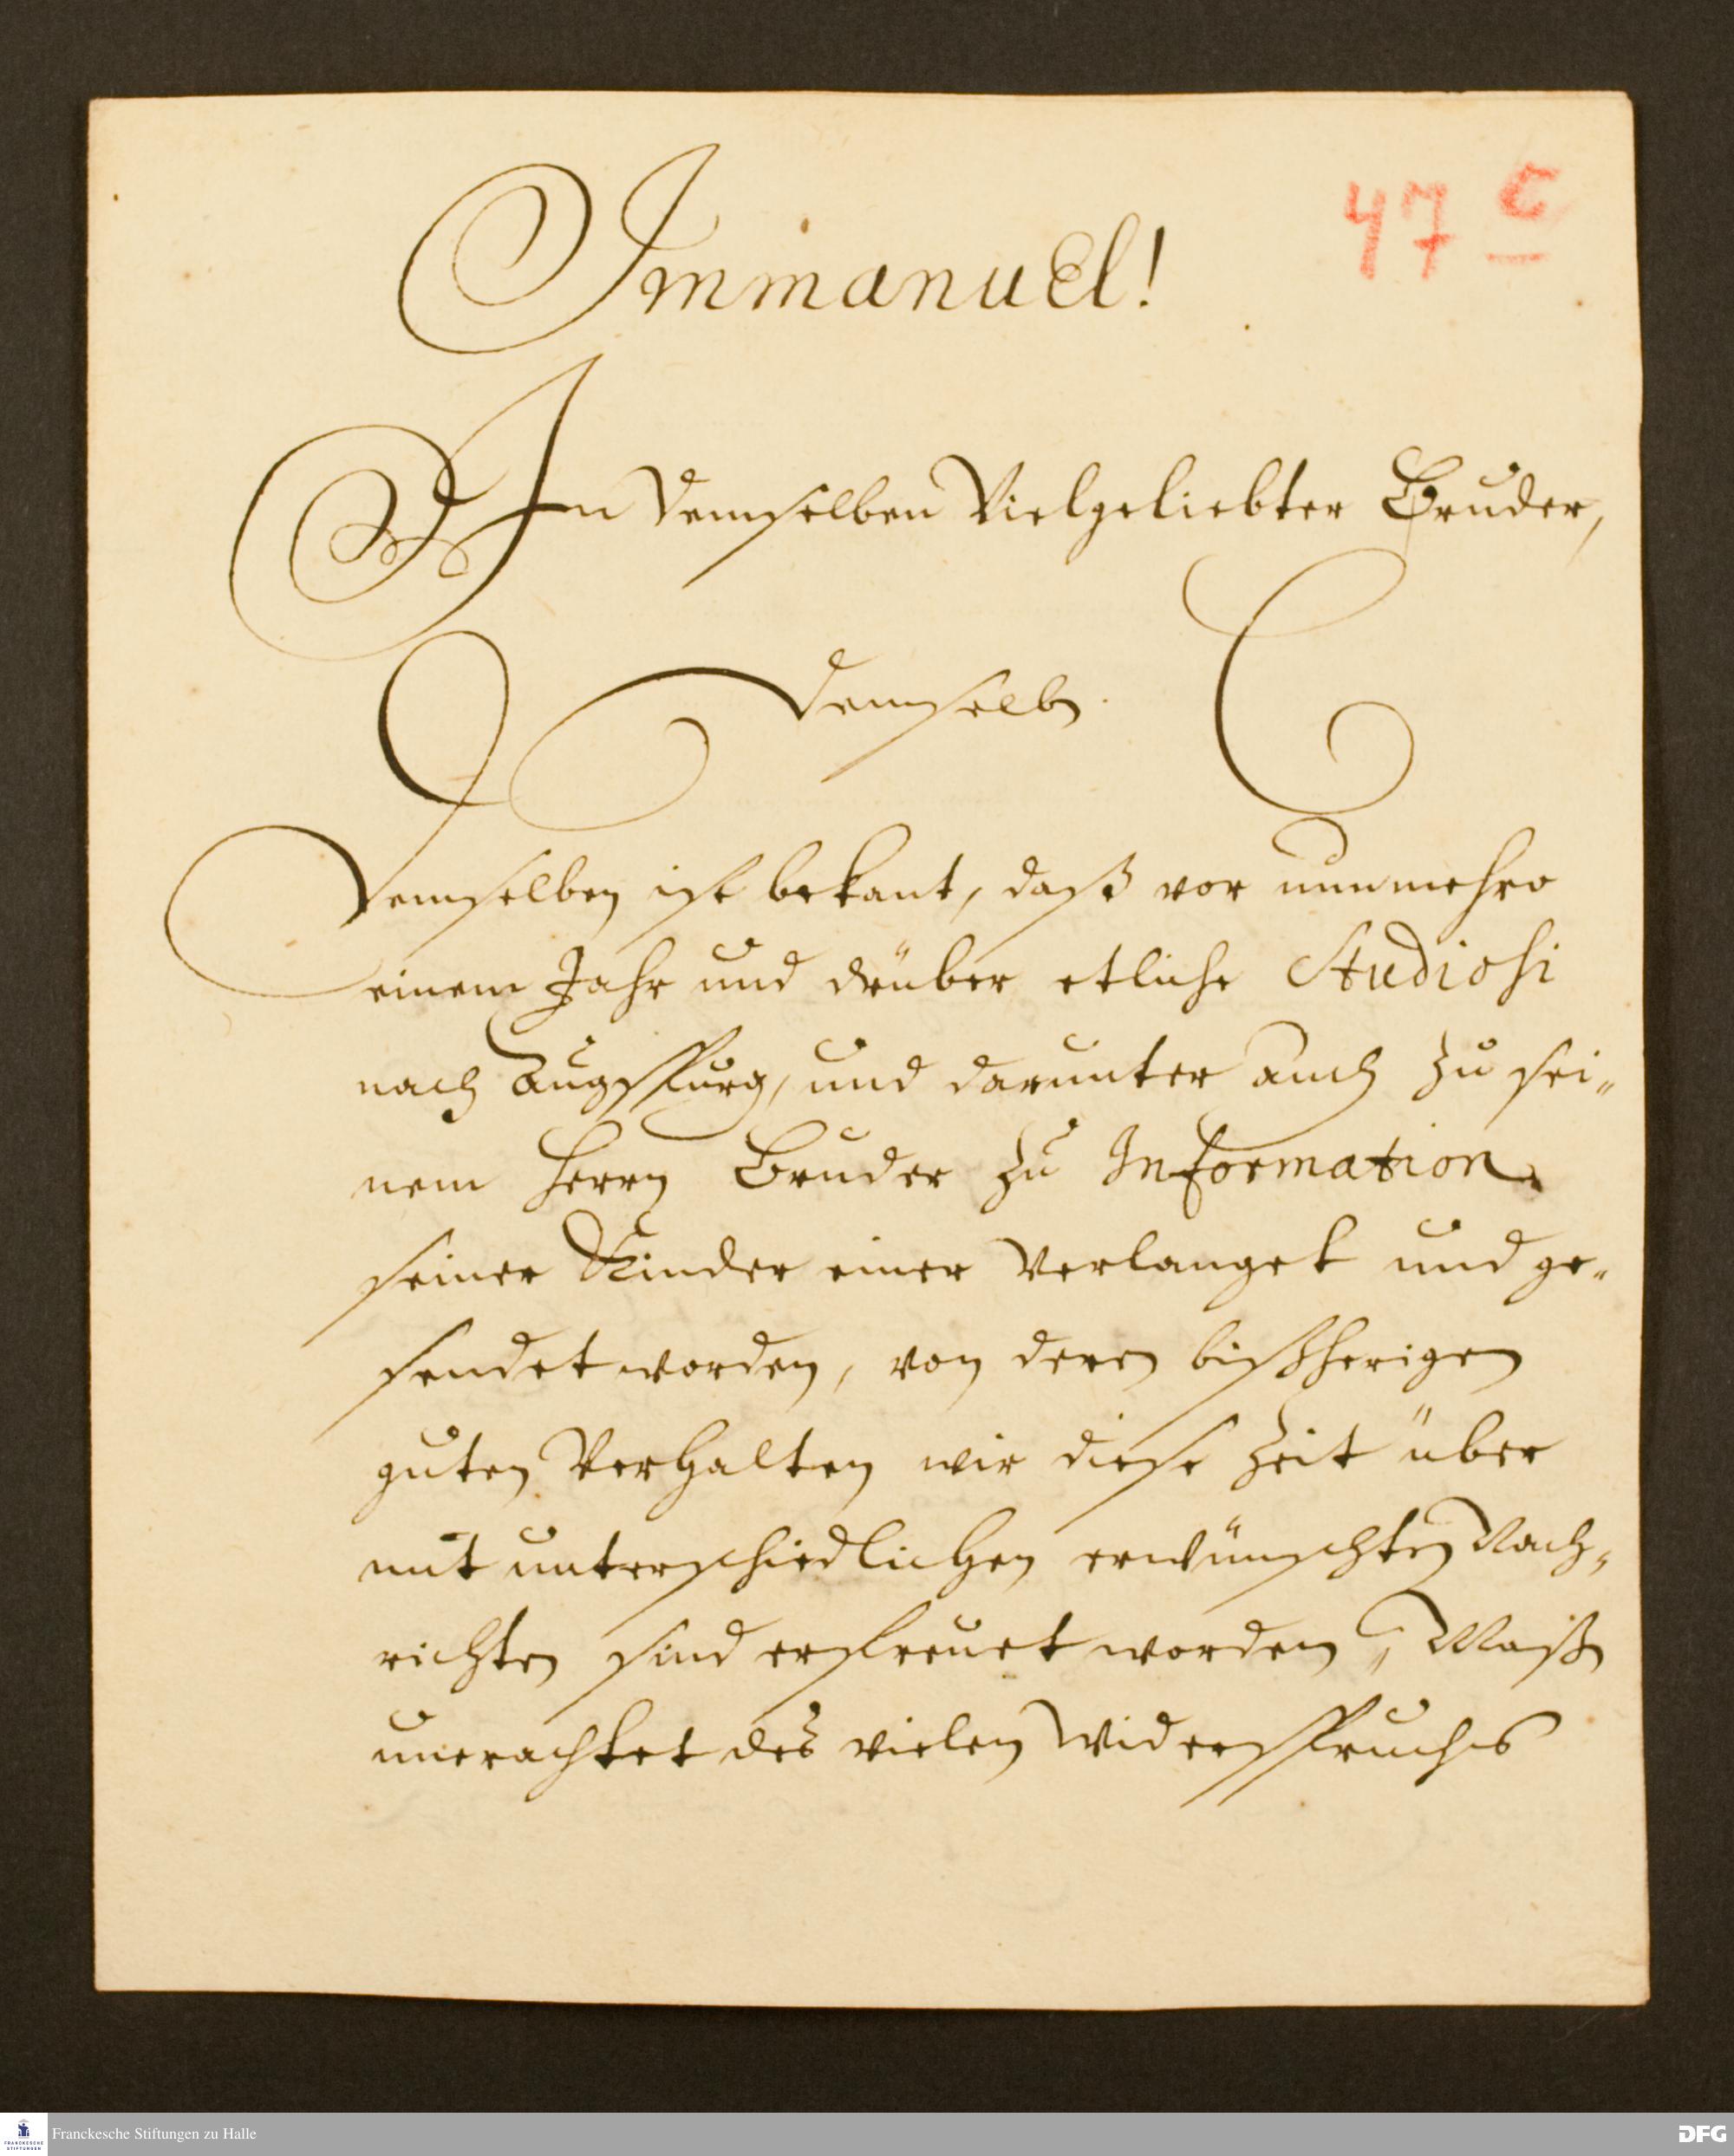 47 c
ImmanuEl!
In demselben Vielgeliebter Bruder,
demselb.
Demselben ist bekant, daß vor nunmehro
einem Jahr und drüber etliche Studiosi
nach Augspurg, und darunter auch zu sei-
nem Herrn Bruder zu Information
seiner Kinder einer verlanget und ge-
sendet worden, von deren bißherigen
guten Verhalten wir diese Zeit über
mit unterschiedlichen erwünschten Nach-
richten sind erfreuet worden, Maßen
unerachtet des vielen Widerspruchs
Franckesche Stiftungen zu Halle
FRANCKESCHE
STIFTUNGEN
DFG